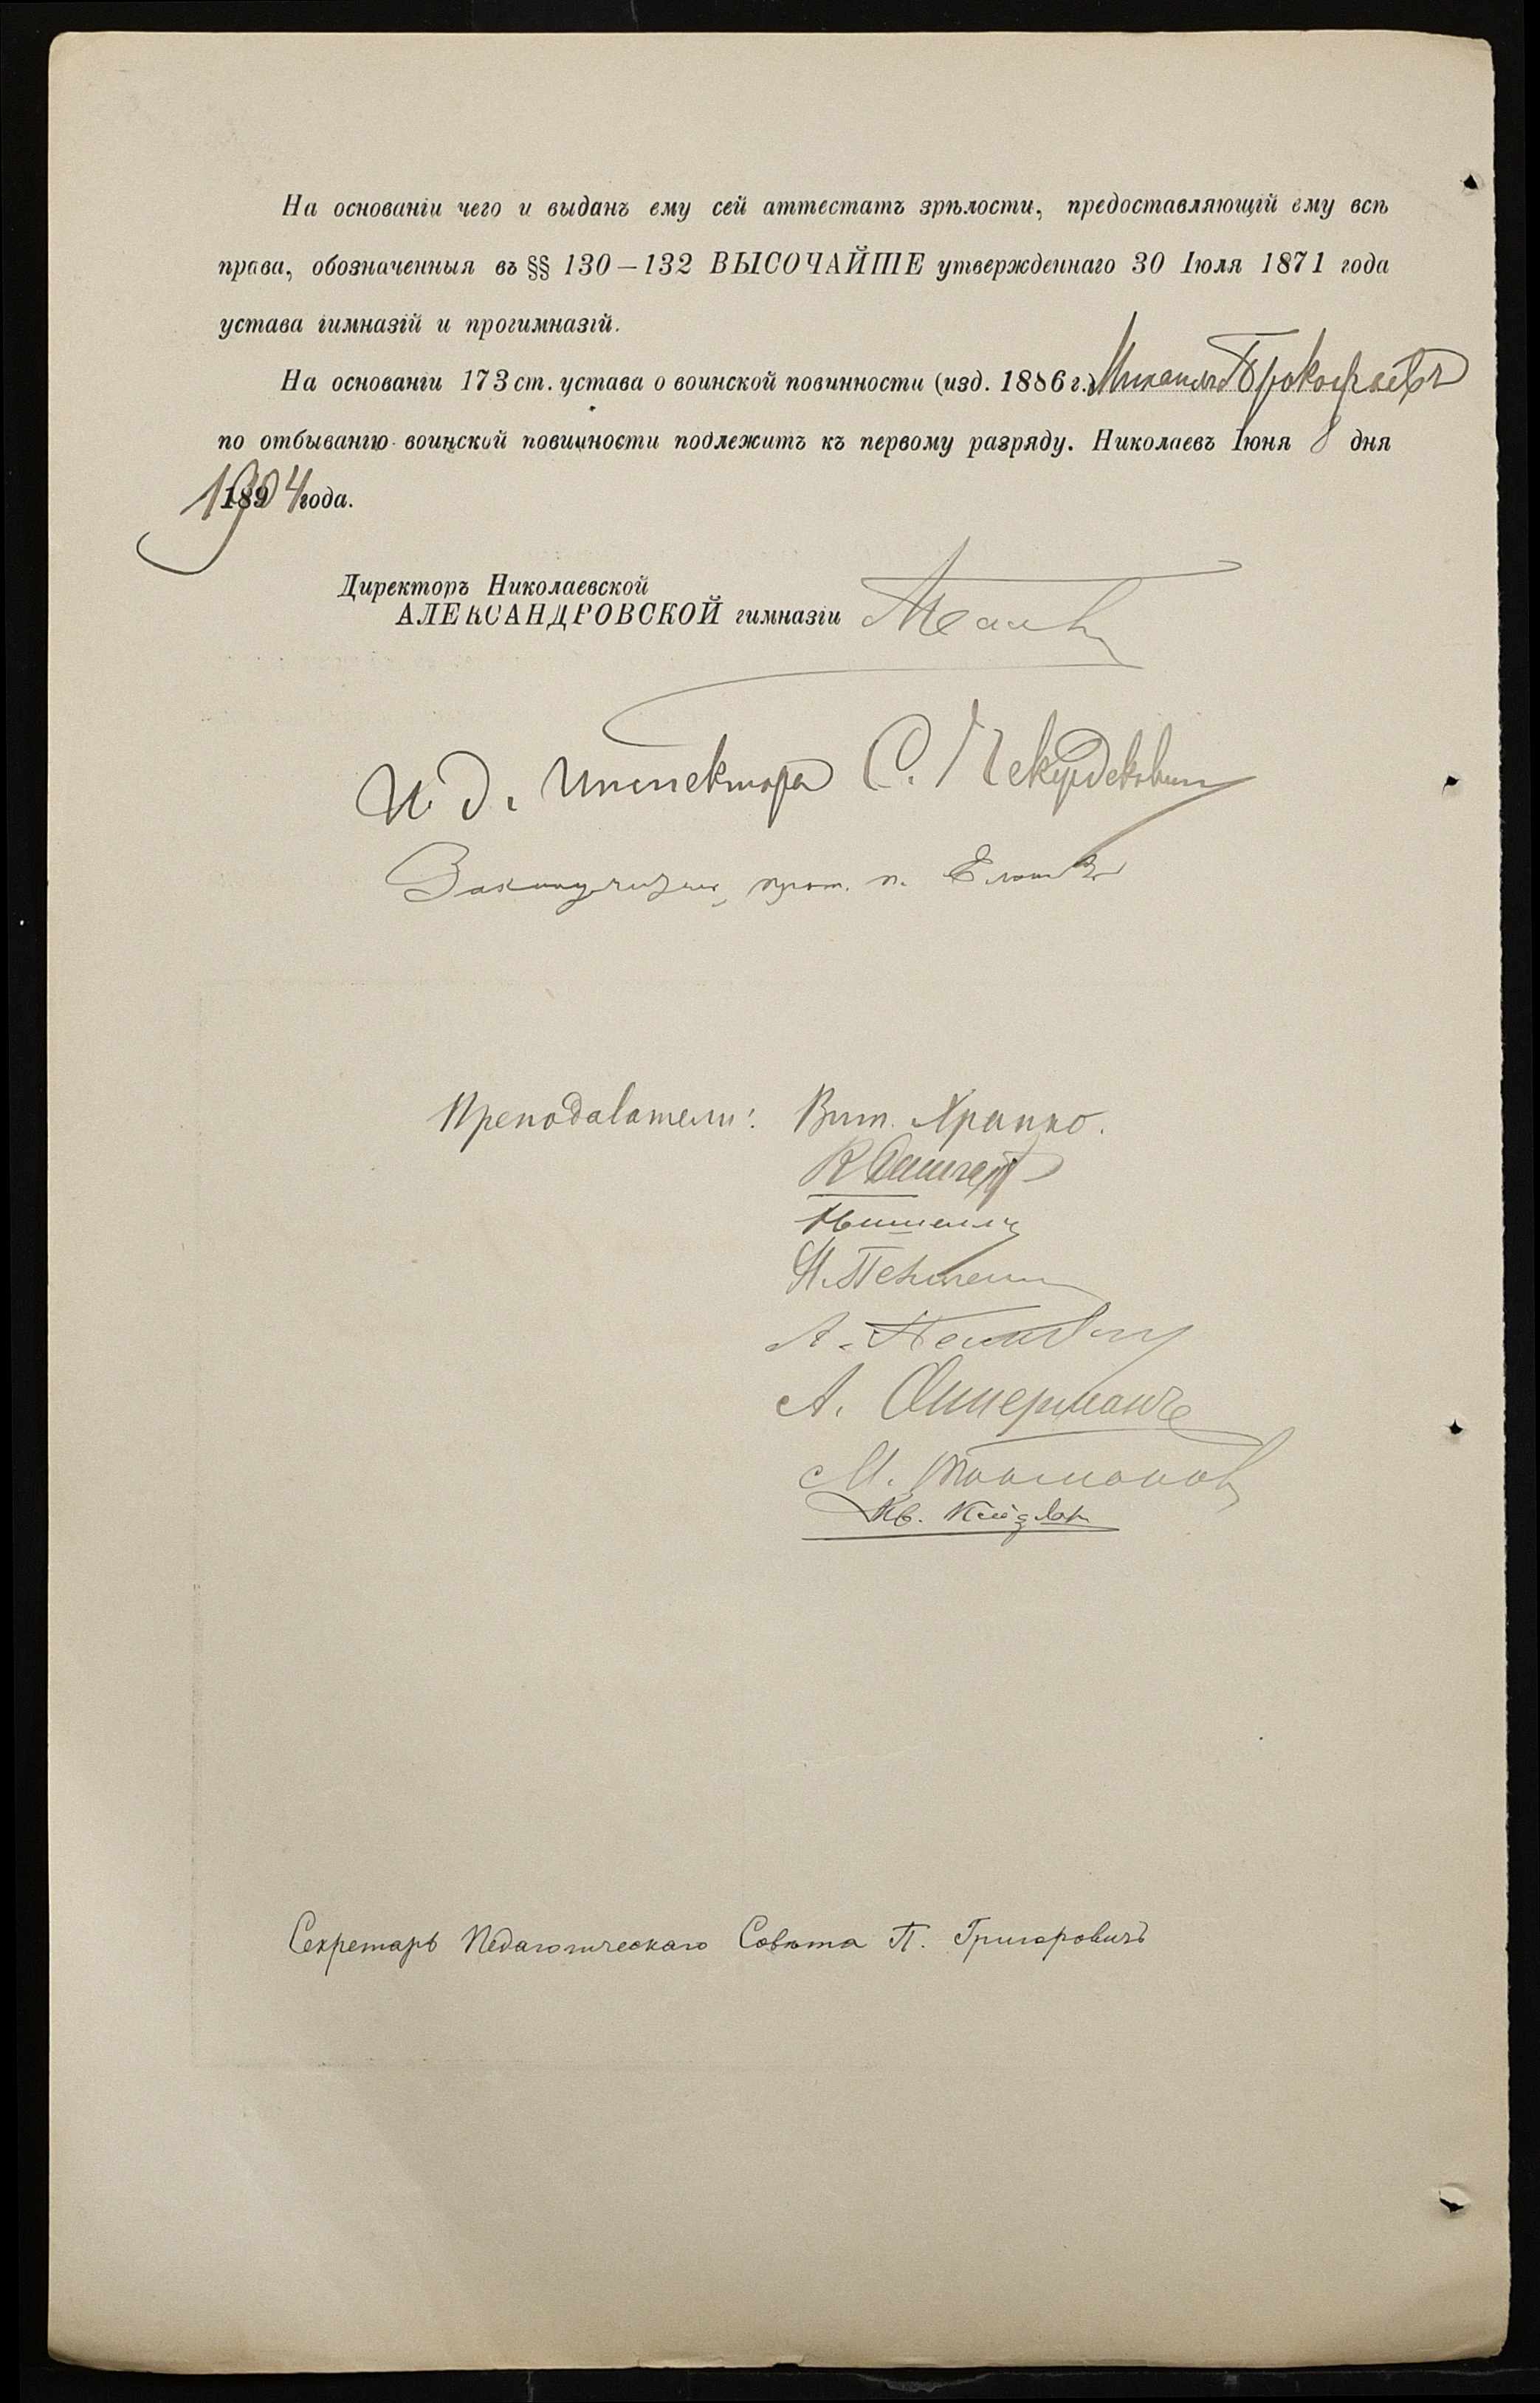 На основаніи чего и выданъ ему сей аттестатъ зрѣлости, предоставляющій ему всѣ
права, обозначенныя въ §§ 130—132 ВЫСОЧАЙШЕ утвержденнаго 30 Іюля 1871 года
устава гимназій и прогимназій.
На основаніи 173 ст. устава о воинской повинности (изд. 1886 г.) Михаилъ Прокофьевъ
по отбыванію воинской повинности подлежитъ къ первому разряду. Николаевъ Іюня 8 дня
1904 года.
Директоръ Николаевской
АЛЕКСАНДРОВСКОЙ гимназіи
И. д. Инспектора С.
Законоучитель, прот. п.
Преподаватели: Вит. Храпко.
А.
А.
М.
Секретарь Педагогическаго Совѣта П. Григоровичъ